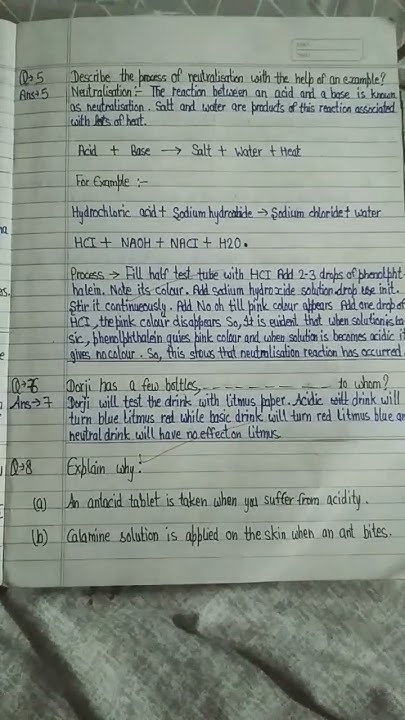 Q→5 Describe the process of neutralisation with the help of an example?
Ans→5 Neutralisation:- The reaction between an acid and a base is known
as neutralisation. Salt and water are products of this reaction associated
with lots of heat.
Acid + Base → Salt + Water + Heat
For Example :-
Hydrochloric acid + Sodium hydroxide → Sodium chloride + water
HCl + NAOH + NACl + H2O.
Process → Fill half test tube with HCl Add 2-3 drops of phenolpht-
halein. Note its colour. Add sodium hydroxide solution drop use init.
Stir it continuously. Add Na oh till pink colour appears Add one drop of
HCl, the pink colour disappears So, It is euident that when solution is ba-
sic, phenolphthalein quies pink colour and when solution is becomes acidic it
gives no colour. So, this shows that neutralisation reaction has occurred.
Q→6 Dorji has a few bottles, _ _ _ _ _ _ _ _ _ _ to whom?
Ans→7 Dorji will test the drink with litmus paper. Acidic drink will
turn blue litmus red while basic drink will turn red litmus blue an
neutral drink will have no effect on litmus.
Q→8 Explain why:-
(a) An antacid tablet is taken when you suffer from acidity.
(b) Calamine solution is applied on the skin when an ant bites.